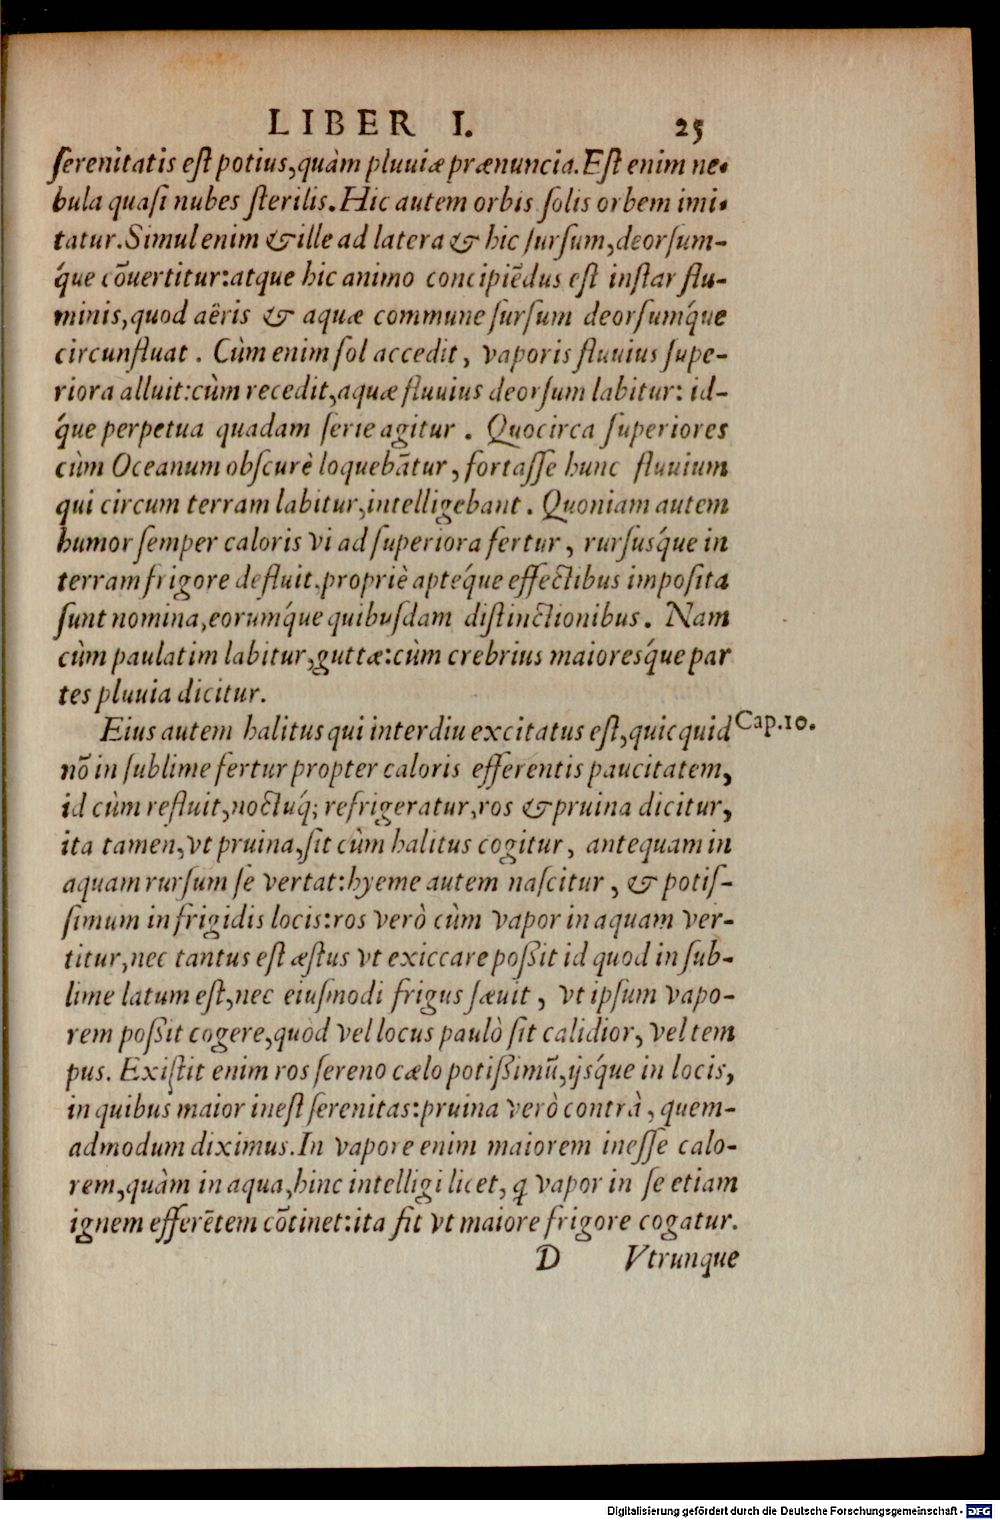 LIBER I. 25
serenitatis est potius, quàm pluuiæ prænuncia. Est enim ne-
bula quasi nubes sterilis. Hic autem orbis solis orbem imi-
tatur. Simul enim & ille ad latera & hic sursum, deorsum-
q́ue cōuertitur: atque hic animo concipiēdus est instar flu-
minis, quod aëris & aquæ commune sursum deorsumq́ue
circunfluat. Cùm enim sol accedit, vaporis fluuius supe-
riora alluit: cùm recedit, aquæ fluuius deorsum labitur: id-
q́ue perpetua quadam serie agitur. Quocirca superiores
cùm Oceanum obscurè loquebātur, fortasse hunc fluuium
qui circum terram labitur, intelligebant. Quoniam autem
humor semper caloris vi ad superiora fertur, rursusq́ue in
terram frigore defluit, propriè apteq́ue effectibus imposita
sunt nomina, eorumq́ue quibusdam distinctionibus. Nam
cùm paulatim labitur, guttæ: cùm crebrius maioresq́ue par
tes pluuia dicitur.
Eius autem halitus qui interdiu excitatus est, quicquid Cap. 10.
nō in sublime fertur propter caloris efferentis paucitatem,
id cùm refluit, noctuq́; refrigeratur, ros & pruina dicitur,
ita tamen, vt pruina, sit cùm halitus cogitur, antequam in
aquam rursum se vertat: hyeme autem nascitur, & potis-
simum in frigidis locis: ros verò cùm vapor in aquam ver-
titur, nec tantus est æstus vt exiccare possit id quod in sub-
lime latum est, nec eiusmodi frigus sæuit, vt ipsum vapo-
rem possit cogere, quòd vel locus paulò sit calidior, vel tem
pus. Existit enim ros sereno cælo potissimū, ijsq́ue in locis,
in quibus maior inest serenitas: pruina verò contrà, quem-
admodum diximus. In vapore enim maiorem inesse calo-
rem, quàm in aqua, hinc intelligi licet, ꝙ vapor in se etiam
ignem efferētem cōtinet: ita fit vt maiore frigore cogatur.
D Vtrunque
Digitalisierung gefördert durch die Deutsche Forschungsgemeinschaft - DFG